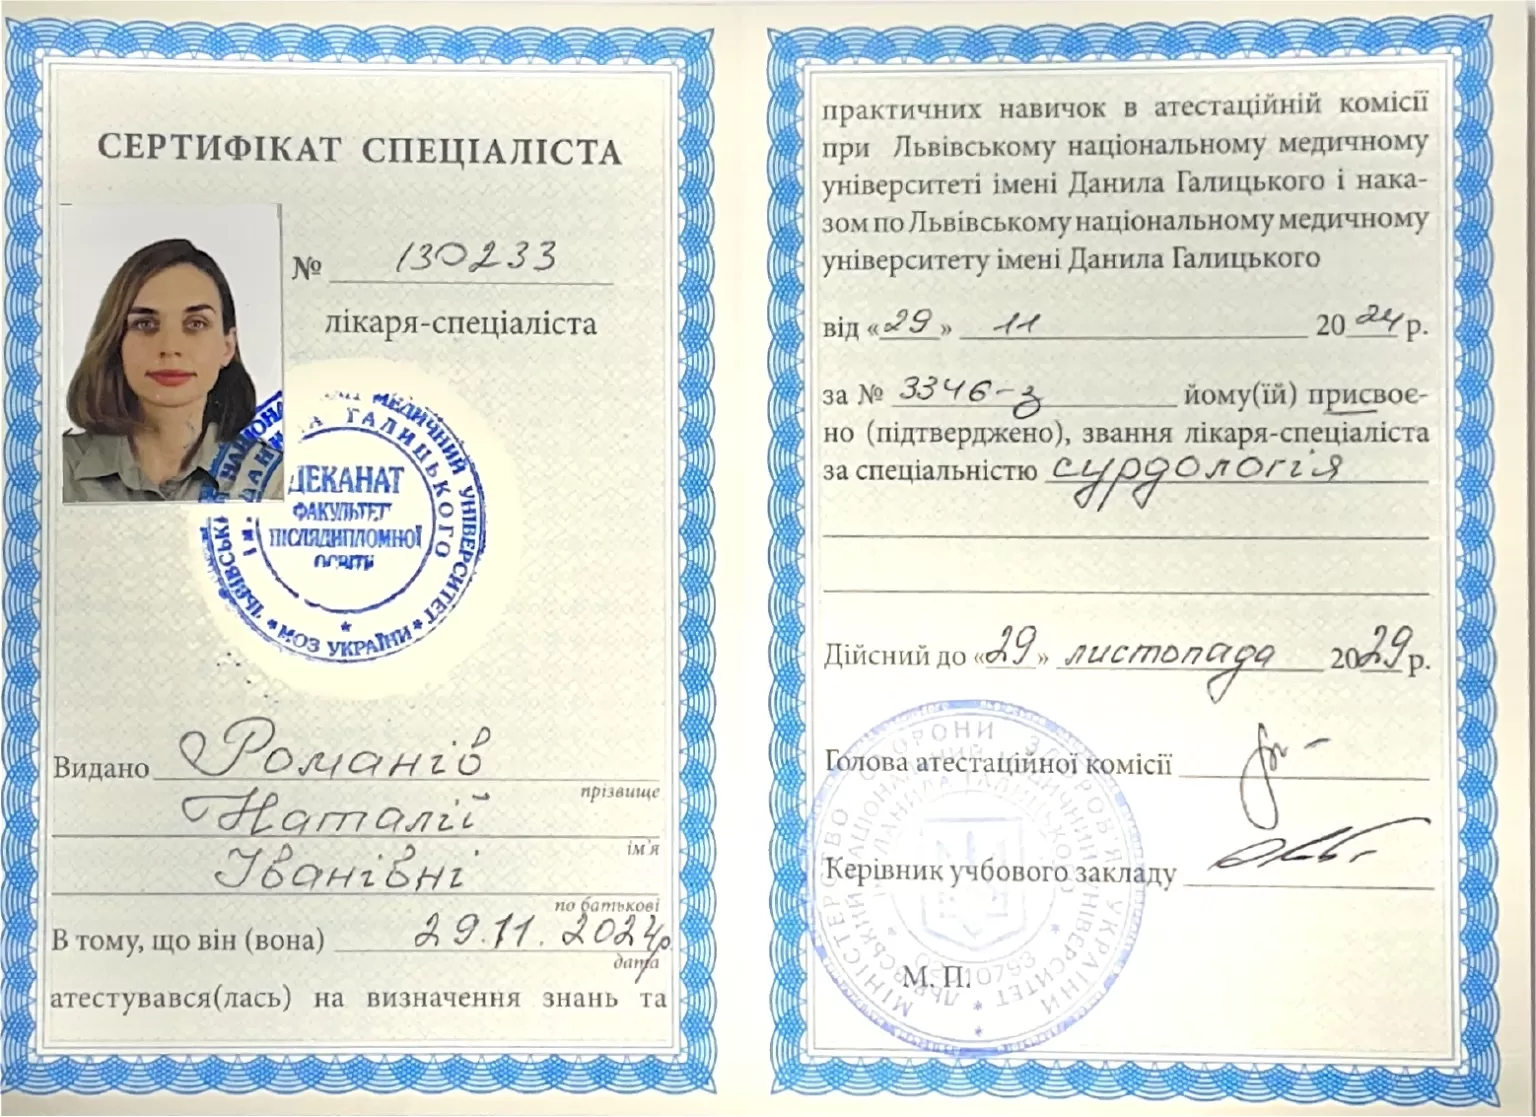 СЕРТИФІКАТ СПЕЦІАЛІСТА
№ 130233
лікаря-спеціаліста
ДЕКАНАТ
ФАКУЛЬТЕТ
ПІСЛЯДИПЛОМНОЇ
ОСВІТИ
МЕДИЧНИЙ УНІВЕРСИТЕТ
ГАЛИЦЬКОГО
* МОЗ УКРАЇНИ *
Видано Романів
прізвище
Наталії
ім'я
Іванівні
по батькові
В тому, що він (вона) 29.11.2024р.
дата
атестувався(лась) на визначення знань та
практичних навичок в атестаційній комісії
при Львівському національному медичному
університеті імені Данила Галицького і нака-
зом по Львівському національному медичному
університету імені Данила Галицького
від «29» 11 2024 р.
за № 3346-з йому(їй) присвоє-
но (підтверджено), звання лікаря-спеціаліста
за спеціальністю сурдологія
Дійсний до «29» листопада 2029 р.
Голова атестаційної комісії
Керівник учбового закладу
М. П.
МІНІСТЕРСТВО ОХОРОНИ ЗДОРОВ'Я УКРАЇНИ